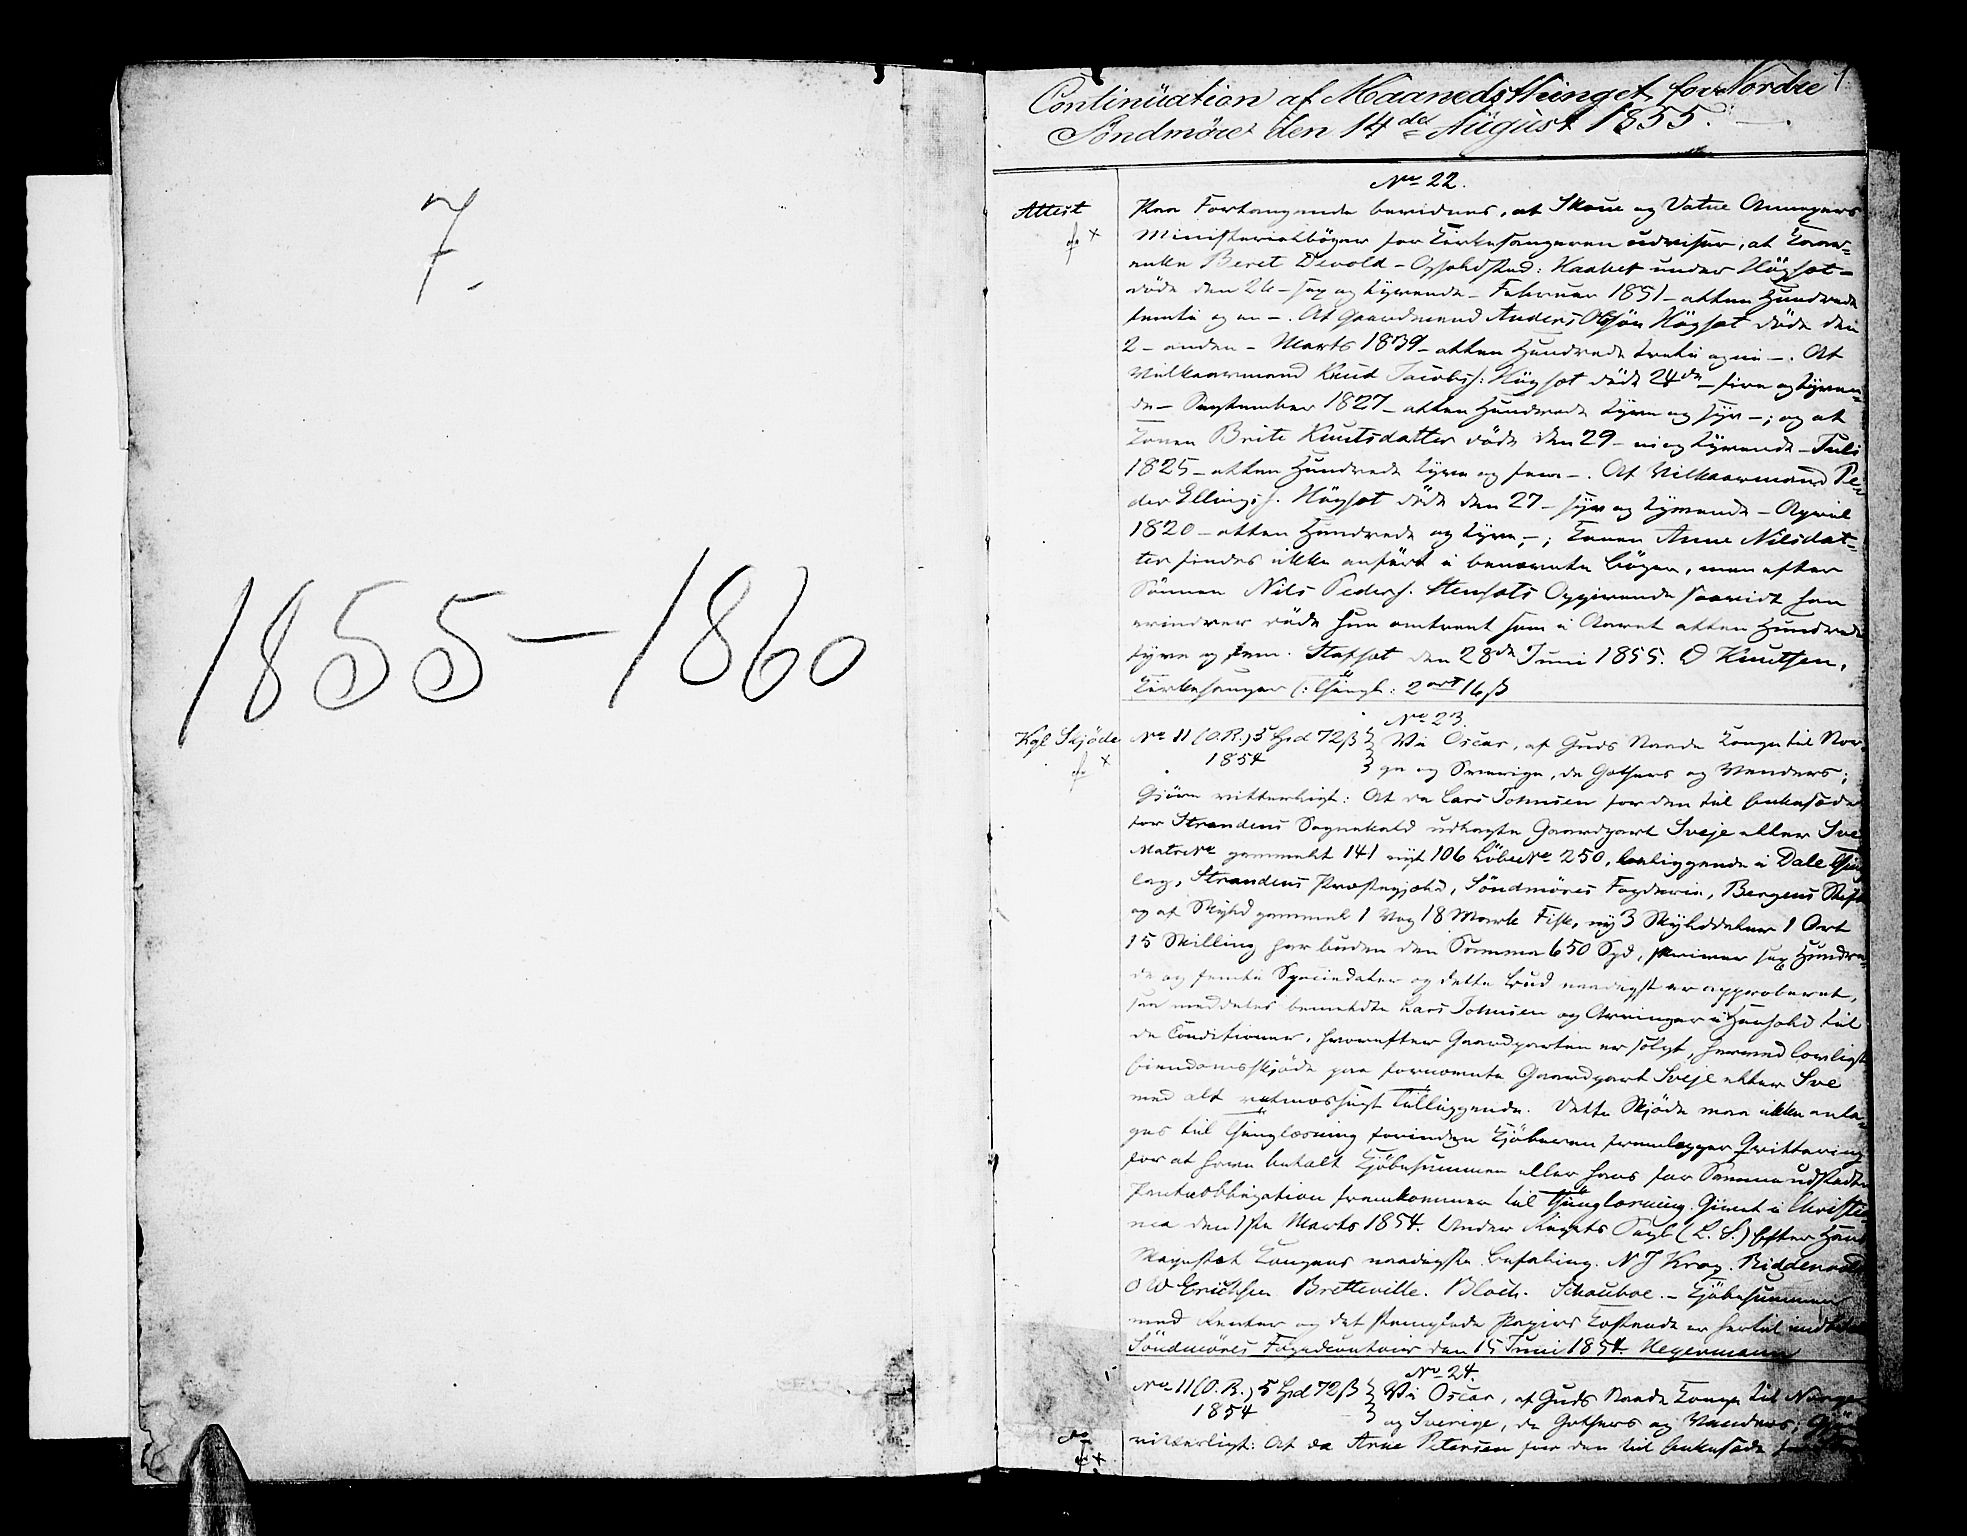 7.
1855–1860
1.
Continuation af Maanedsthinget for Nordre
Söndmöre den 14de August 1855.
No 22.
Attest
Paa Forlangende bevidnes, at Skoue og Vatne Annexers
Ministerialböger for Kirkesangeren udviser, at Kaar-
enke Beret Devold – Opholdsted: Haabet under Högset –
döde den 26 – sex og tyvende – Februar 1851 – atten Hundrede
femti og en –. At Gaardmand Anders Olssön Högset döde den
2 – anden – Marts 1839 – atten Hundrede treti og ni –. At
Vilkaarmand Knud Jacobs: Högset döde 24de – fire og tyven-
de – September 1827 – atten Hundrede tyve og syv –; og at
Konen Brite Knutsdatter döde den 29 – ni og tyvende – Juli
1825 – atten Hundrede tyve og fem –. At Vilkaarmand Pe-
der Ellings. Högset döde den 27 – syv og tyvende – April
1820 – atten Hundrede og tyve –; Konen Anne Nilsdat-
ter findes ikke anfört i benævnte böger, men efter
Sönnen Nils Peders. Stensets Opgivende saavidt han
erindrer döde hun omtrent som i Aaret atten Hundrede
tyve og fem. Stafset den 28de Juni 1855. O Knutsen,
Kirkesanger (: thingl: 2 ort 16 ß
No 23.
Kgl Skjöde
No 11 (O.R.) 5 Spd 72 ß
1854
Vi Oscar, af Guds Naade Konge til Nor-
ge og Sverige, de Gothers og Venders;
Gjöre vitterligt: At da Lars Johnsen for den til beneficeret
for Strandens Sognekald udlagte Gaardpart Sveje eller Sve
Matr No gammelt 141 nyt 106 Löbe No 250, beliggende i Dale Thing
lag, Strandens Præstegjeld, Söndmöres Fogderie, Bergens Stift
og af Skyld gammel 1 Vog 18 Mark Fisk, ny 3 Skylddaler 1 Ort
15 Skilling har buden den Summa 650 Spd, skriver sex Hundre-
de og femti Speciedaler og dette bud naadigst er approberet,
saa meddeles bemeldte Lars Johnsen og Arvinger i Henhold til
de Conditioner, hvorefter Gaardparten er solgt, herved lovligt
Eiendomsskjöde paa fornævnte Gaardpart Sveje eller Sve
med alt retmæssigt Tilliggende. Dette Skjöde maa ikke anta-
ges til Thinglæsning forinden Kjöberen fremlægger Qvittering
for at have betalt Kjöbesummen eller hans for Samme udstedte
Panteobligation fremkommer til Thinglæsning. Givet i Christia-
nia den 1ste Marts 1854. Under Rigets Segl (L. S.) Efter Hans
Majestæt Kongens naadigste befaling. N J Krog. Riddervold
O W Erichsen Bretteville. Bloch. Schouboe. – Kjöbesummen
med Renter og det stemplede Papirs Kostende er hertil indbetalt
Söndmöres Fogedcontoir den 15 Juni 1854. Hegermann
No 24.
do
No 11 (O.R.) 5 Spd 72 ß
1854
Vi Oscar, af Guds Naade Konge til Norge
og Sverige, de Gothers og Venders; Gjör
vitterligt: At da Arne Petersen for den til